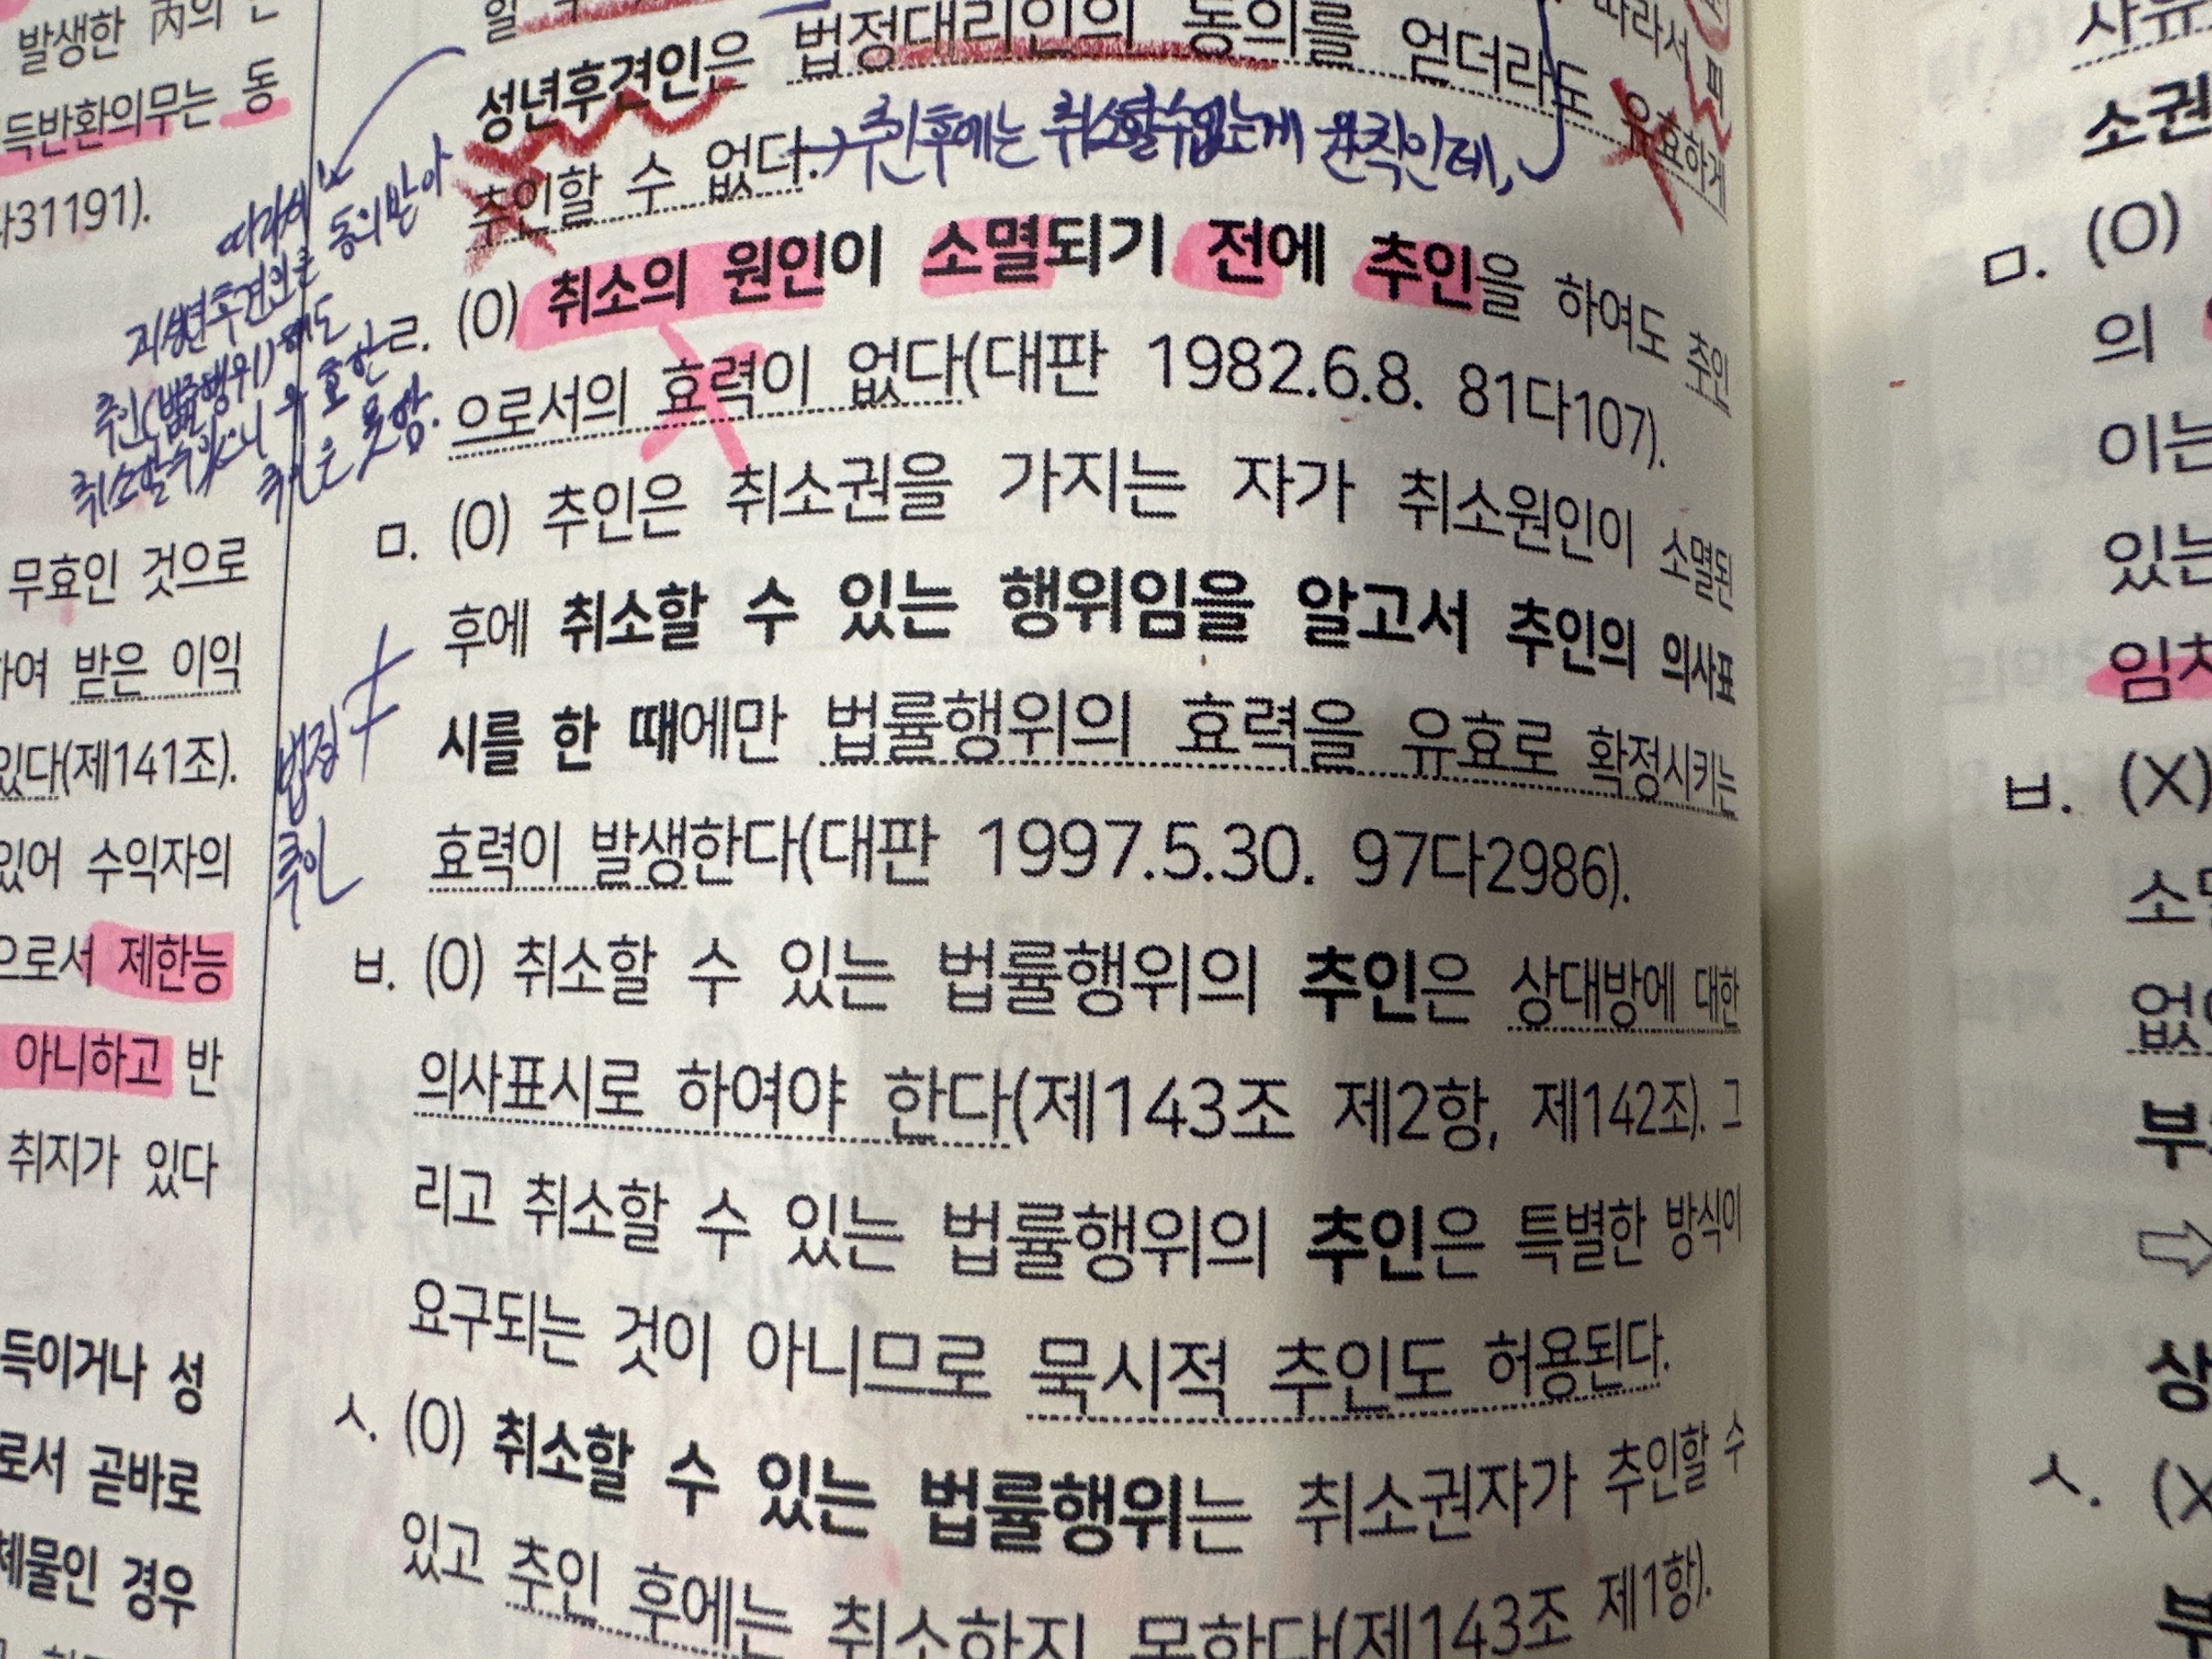 발생한 丙의
득반환의무는 동
31191).
무효인 것으로
하여 받은 이익
있다(제141조).
있어 수익자의
으로서 제한능
아니하고 반
취지가 있다
득이거나 성
로서 곧바로
체물인 경우
따라서
피성년후견인은 동의받아
추인(법률행위)해도
취소할 수 있으니 유효한
추인은 못함.
법정
추인
성년후견인은 법정대리인의 동의를 얻더라도 유효하게
추인할 수 없다. → 추인후에는 취소할수없는게 원칙인데,
ㄹ. (O) 취소의 원인이 소멸되기 전에 추인을 하여도 추인
으로서의 효력이 없다(대판 1982.6.8. 81다107).
ㅁ. (O) 추인은 취소권을 가지는 자가 취소원인이 소멸된
후에 취소할 수 있는 행위임을 알고서 추인의 의사표
시를 한 때에만 법률행위의 효력을 유효로 확정시키는
효력이 발생한다(대판 1997.5.30. 97다2986).
ㅂ. (O) 취소할 수 있는 법률행위의 추인은 상대방에 대한
의사표시로 하여야 한다(제143조 제2항, 제142조). 그
리고 취소할 수 있는 법률행위의 추인은 특별한 방식이
요구되는 것이 아니므로 묵시적 추인도 허용된다.
ㅅ. (O) 취소할 수 있는 법률행위는 취소권자가 추인할 수
있고 추인 후에는 취소하지 못한다(제143조 제1항).
따라서
피
사유
소권
ㅁ. (O)
의
이는
있는
임차
ㅂ. (X)
소멸
없
부
⇨
상
ㅅ. (X
부